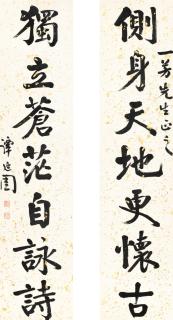 側身天地更懷古
一芳先生正之
獨立蒼茫自詠詩
譚延闓